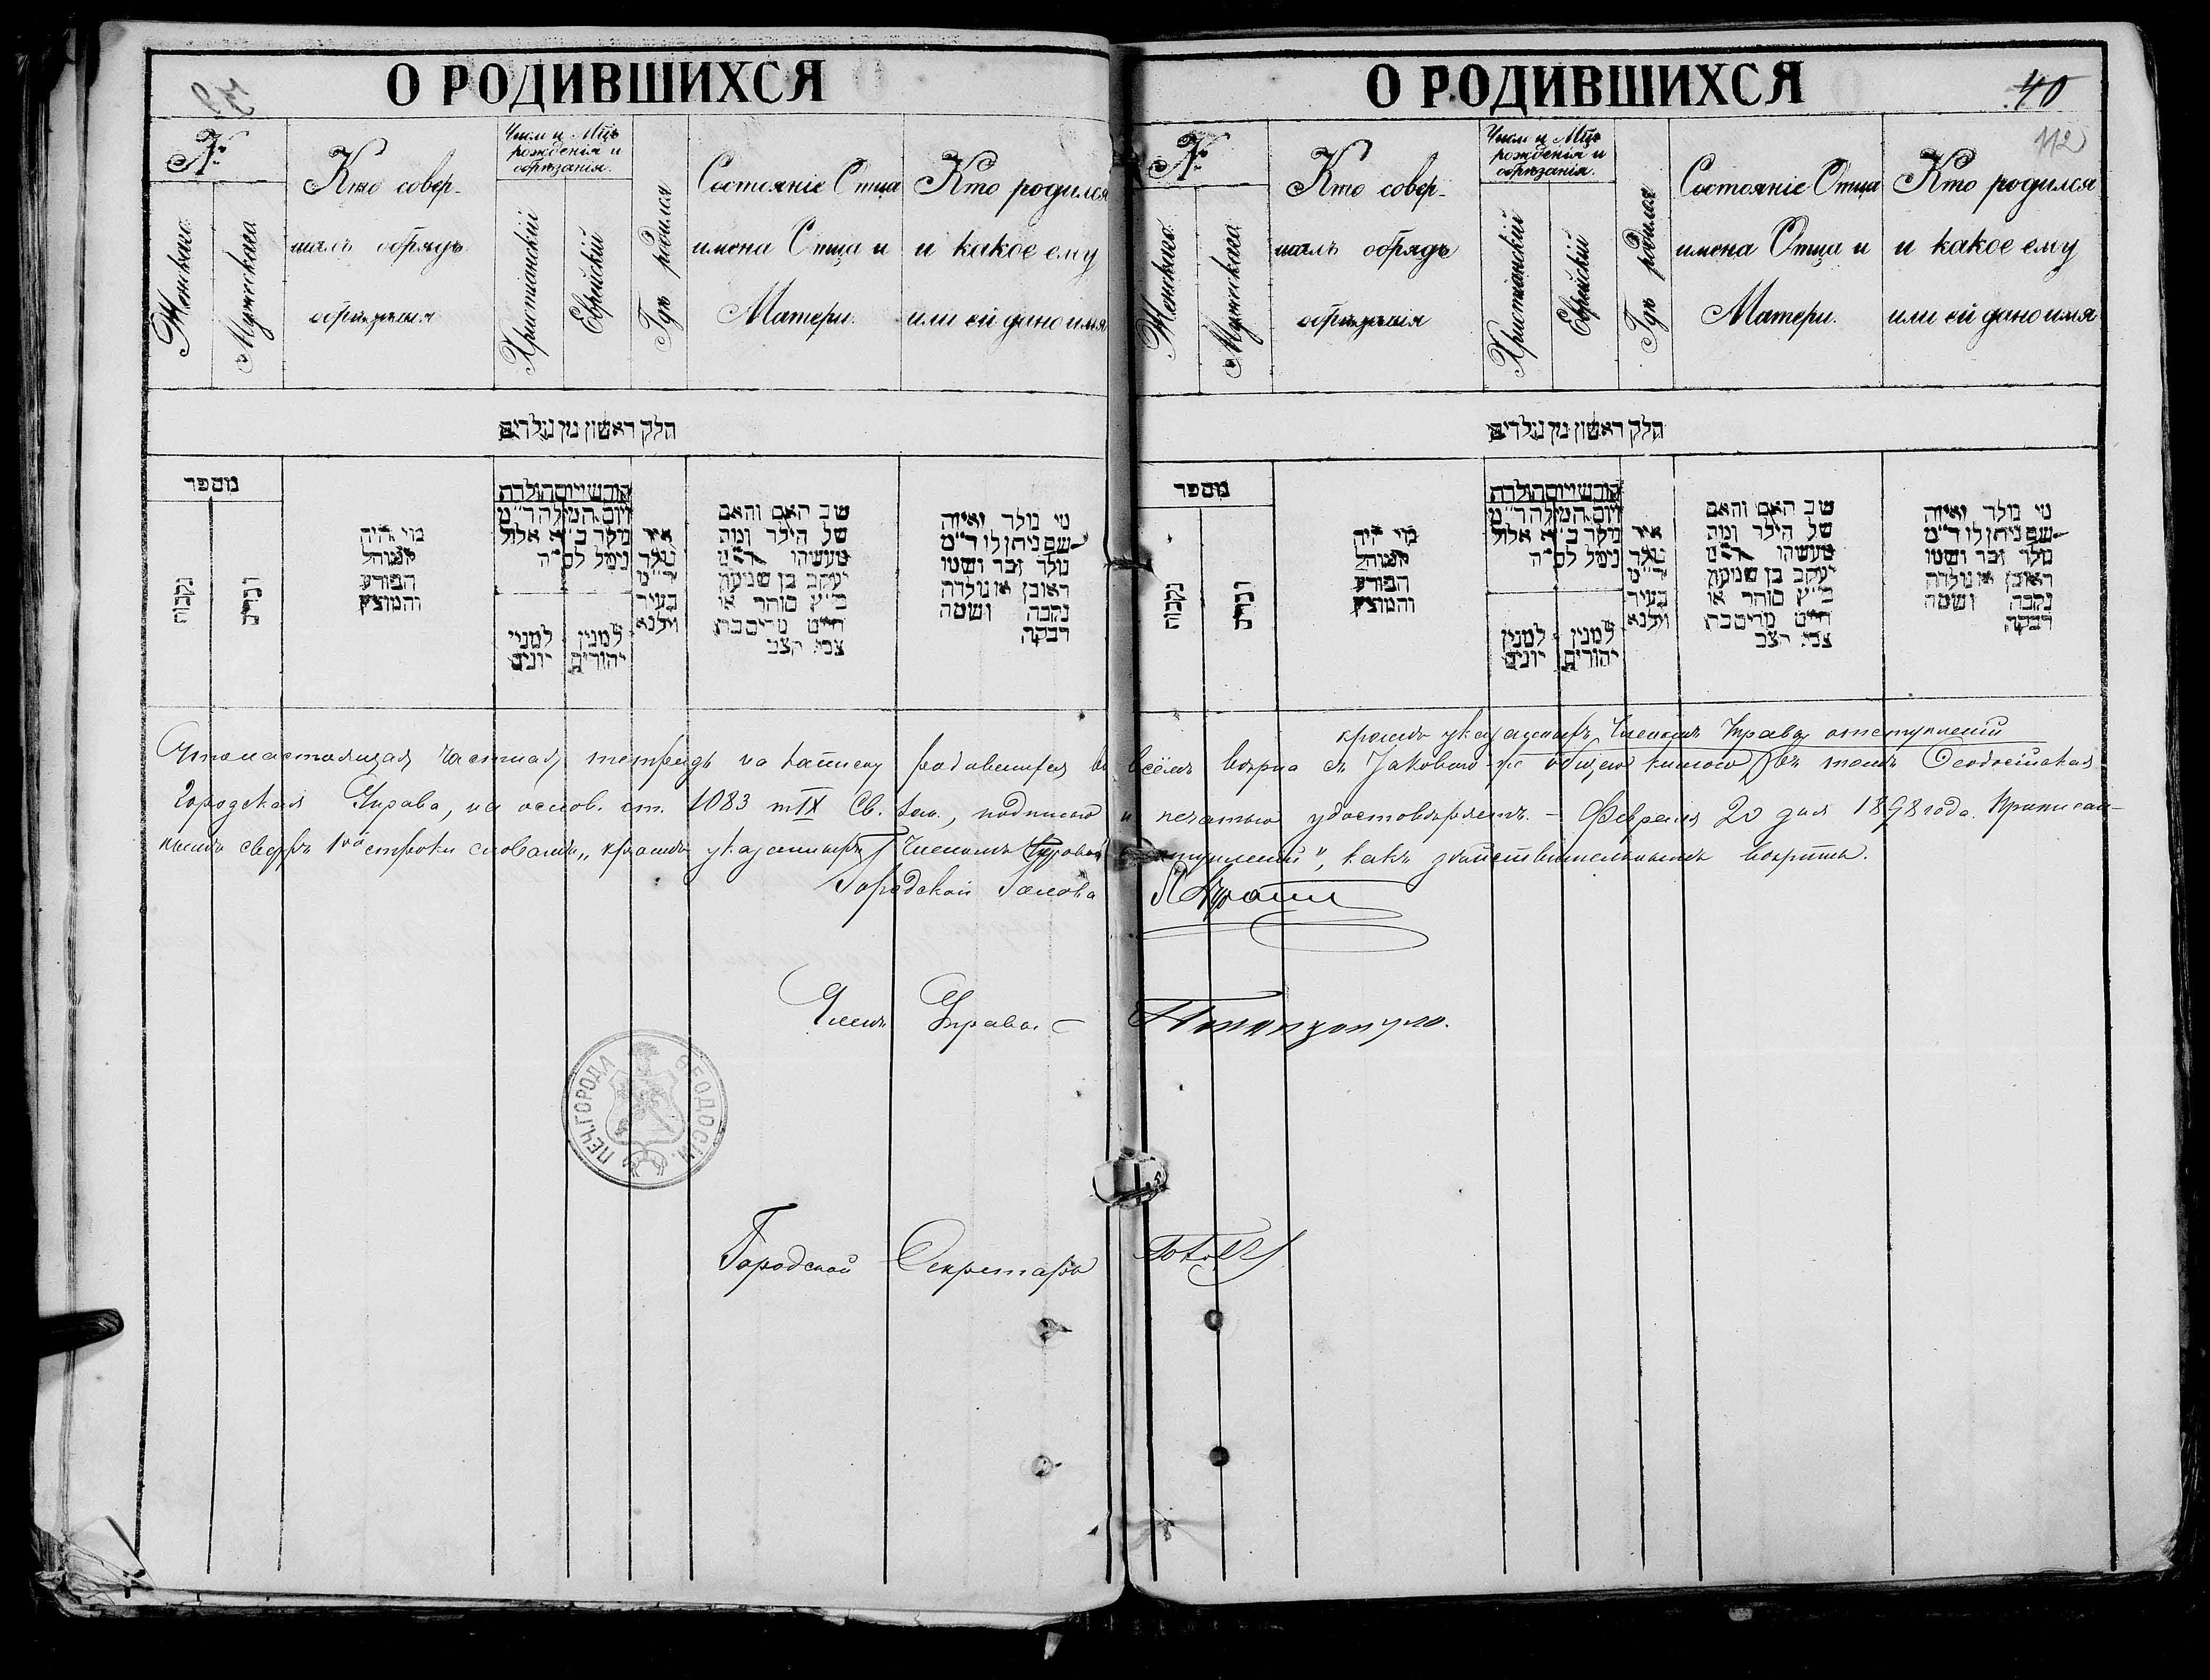 О РОДИВШИХСЯ
№
Женскаго
Мужескаго
Кто совер-
шалъ обрядъ
обрѣзанія
Число и Мцъ
рожденія и
обрѣзанія.
Христіанскій
Еврейскій
Гдѣ родился
Состояніе Отца
имена Отца и
Матери.
Кто родился
и какое ему
или ей дано имя
חלק ראשון מן נולדים
מספר
נקבות
זכרים
מי היה
המוהל
הפורע
והמוצץ
חודש ויום הולדת
ויום המילה ד"מ
נולד ב' א אלול
נימל לס"ה
למניין
יונים
למנין
יהודים
איו
נולד
ד"מ
בעיר
ווילנא
שם האם והאב
של הילד ומה
מעשיהו
יעקב בן שמעון
כ"ץ סוחר או
חייט מרים בת
צבי קצב
מי נולד ואיזה
שם ניתן לו ד"מ
נולד זכר ושמו
ראובן או נולדה
נקבה ושמה
רבקה
О РОДИВШИХСЯ
40
112
№
Женскаго
Мужескаго
Кто совер-
шалъ обрядъ
обрѣзанія
Число и Мцъ
рожденія и
обрѣзанія.
Христіанскій
Еврейскій
Гдѣ родился
Состояніе Отца
имена Отца и
Матери.
Кто родился
и какое ему
или ей дано имя
חלק ראשון מן נולדים
מספר
נקבות
זכרים
מי היה
המוהל
הפורע
והמוצץ
חודש ויום הולדת
ויום המילה ד"מ
נולד ב' א אלול
נימל לס"ה
למנין
יונים
למנין
יהודים
איו
נולד
ד"מ
בעיר
ווילנא
שם האם והאב
של הילד ומה
מעשיהו
יעקב בן שמעון
כ"ץ סוחר או
חייט מרים בת
צבי קצב
מי נולד ואיזה
שם ניתן לו ד"מ
נולד זכר ושמו
ראובן או נולדה
נקבה ושמה
רבקה
кромѣ указанныхъ Членомъ Управы отступленій
Что настоящая частная тетрадь на записку родившихся во всёмъ вѣрна съ таковою-же общею книгою въ томъ Ѳеодосійская
Городская Управа, на основ. ст. 1083 т IX Св. Зак., подписью и печатью удостовѣряетъ. – Февраля 20 дня 1898 года. Приписан-
нымъ сверхъ 1ой строки словамъ „кромѣ указанныхъ Членомъ Управы отступленій", какъ дѣйствительнымъ вѣрить.
Городской Голова
Членъ Управы
ПЕЧ. ГОРОДА ѲЕОДОСІИ.
Городской Секретарь